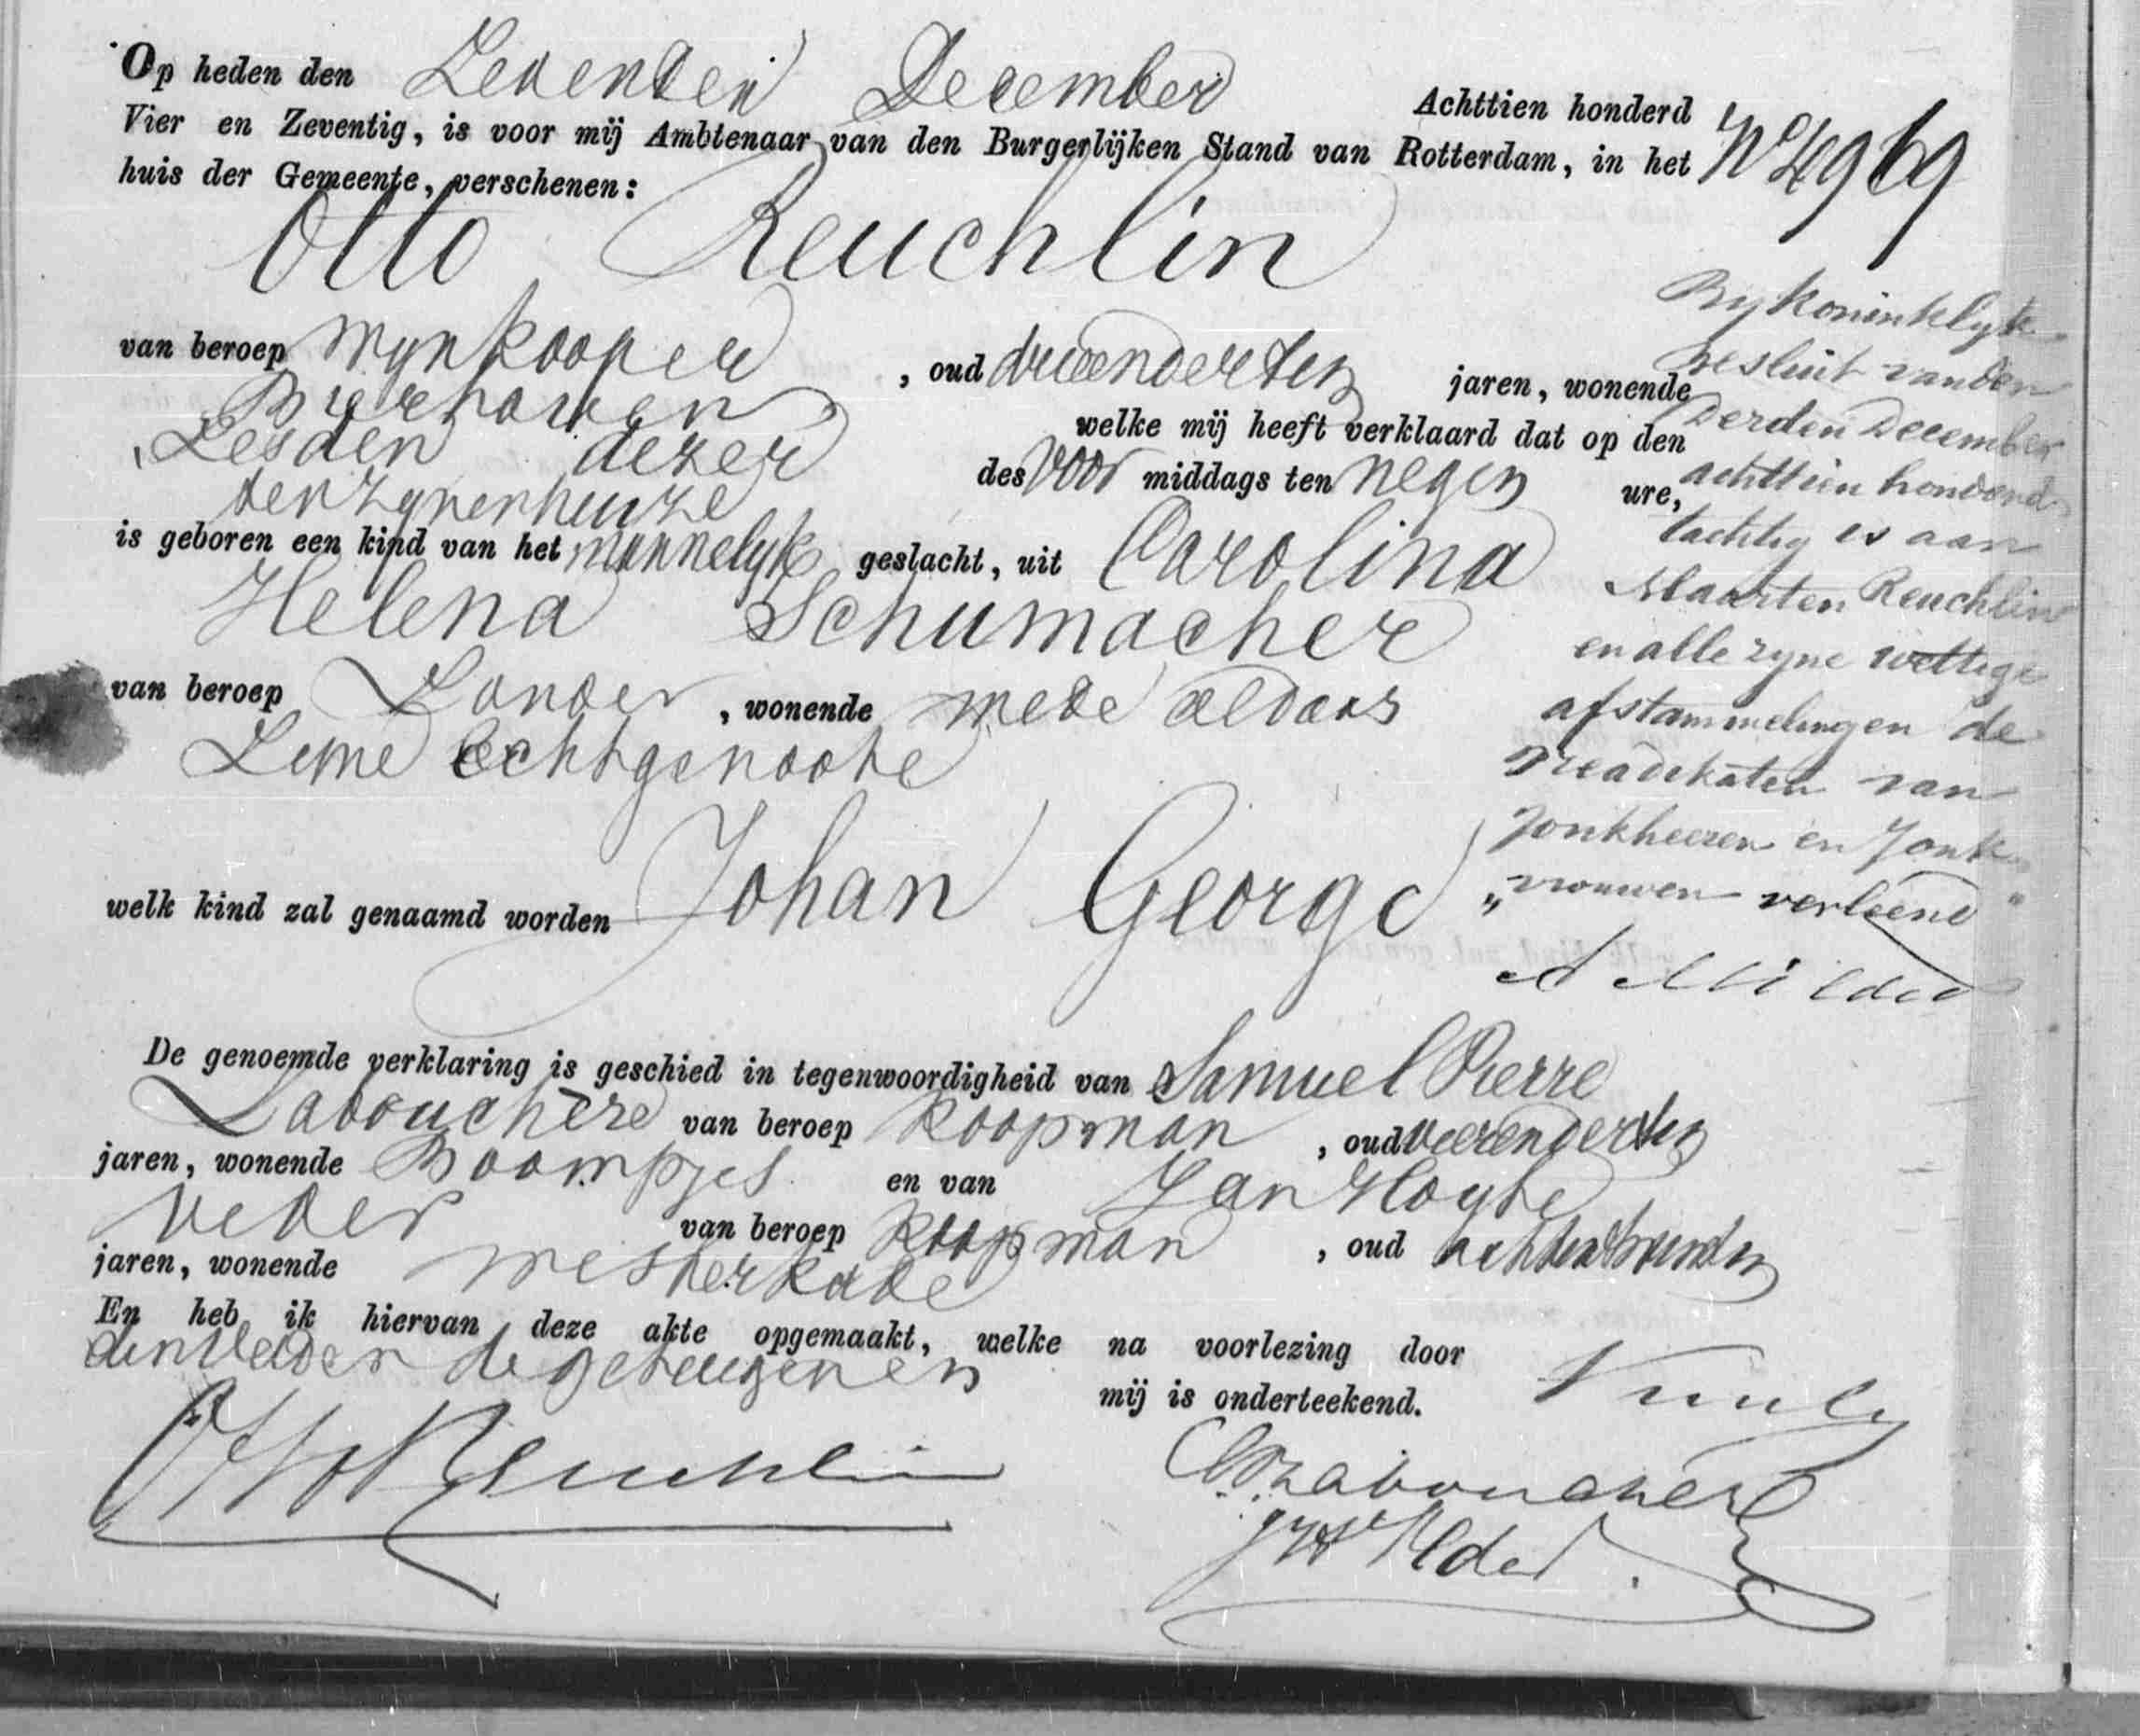 Op heden den Zevenden December Achttien honderd
Vier en Zeventig, is voor mij Ambtenaar van den Burgerlijken Stand van Rotterdam, in het
huis der Gemeente, verschenen:
Otto Reuchlin
van beroep Wynkooper, oud drieendertig jaren, wonende
Bierhaven welke mij heeft verklaard dat op den
Zesden dezer des Voor middags ten negen ure,
ten zynenhuize
is geboren een kind van het mannelyk geslacht, uit Carolina
Helena Schumacher
van beroep Zonder, wonende mede aldaar
Zyne Echtgenoote
welk kind zal genaamd worden Johan George
De genoemde verklaring is geschied in tegenwoordigheid van Samuel Pierre
Labouchère van beroep koopman, oud vierendertig
jaren, wonende Boompjes en van Jan Hoyte
Veder van beroep koopman, oud achtentwintig
jaren, wonende Westerkade
En heb ik hiervan deze akte opgemaakt, welke na voorlezing door
den Vader de getuigen en mij is onderteekend.
Otto Reuchlin
Labouchere
JH Veder
No 4969
By Koninklyk
Besluit van den
derden December
achttien honderd
tachtig is aan
Maarten Reuchlin
en alle zyne wettige
afstammelingen de
Preadikaten van
Jonkheeren en Jonk
„vrouwen verleend"